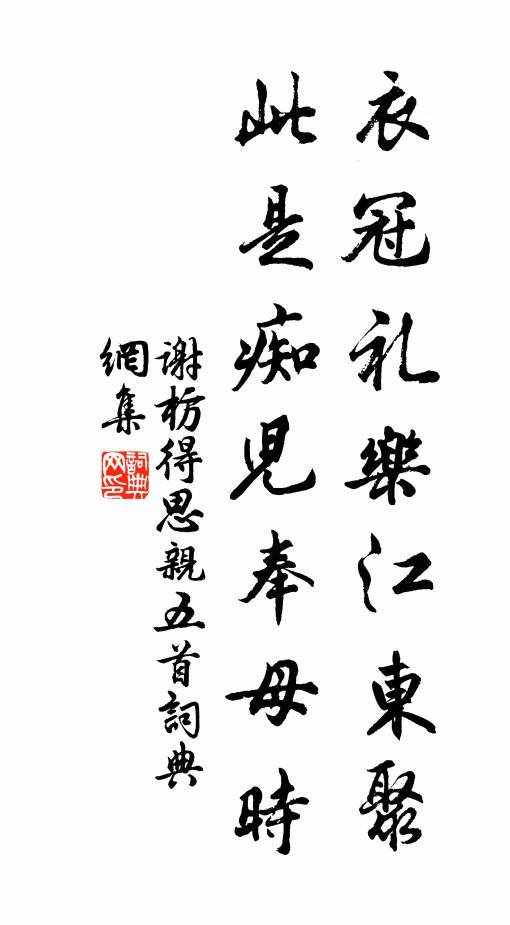 衣冠礼樂江東聚
此是痴児奉母時
謝枋得思親五首詞典
網集
詞典网印